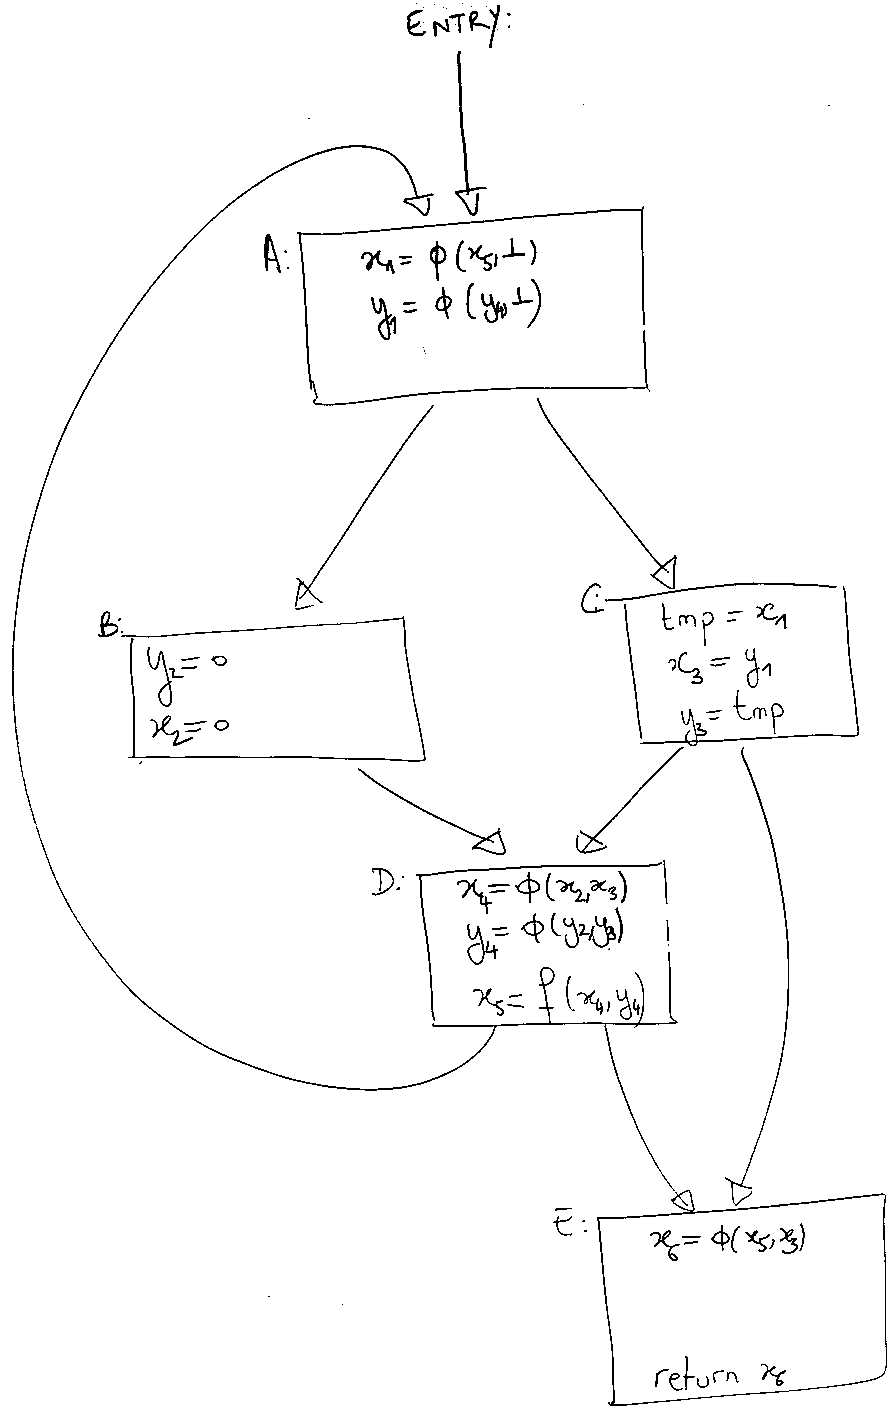 ENTRY:
A:
x₁ = ϕ(x₅,⊥)
y₁ = ϕ(y₄,⊥)
B:
y₂ = 0
x₂ = 0
C:
tmp = x₁
x₃ = y₁
y₃ = tmp
D:
x₄ = ϕ(x₂,x₃)
y₄ = ϕ(y₂,y₃)
x₅ = f(x₄,y₄)
E:
x₆ = ϕ(x₅,x₃)
return x₆